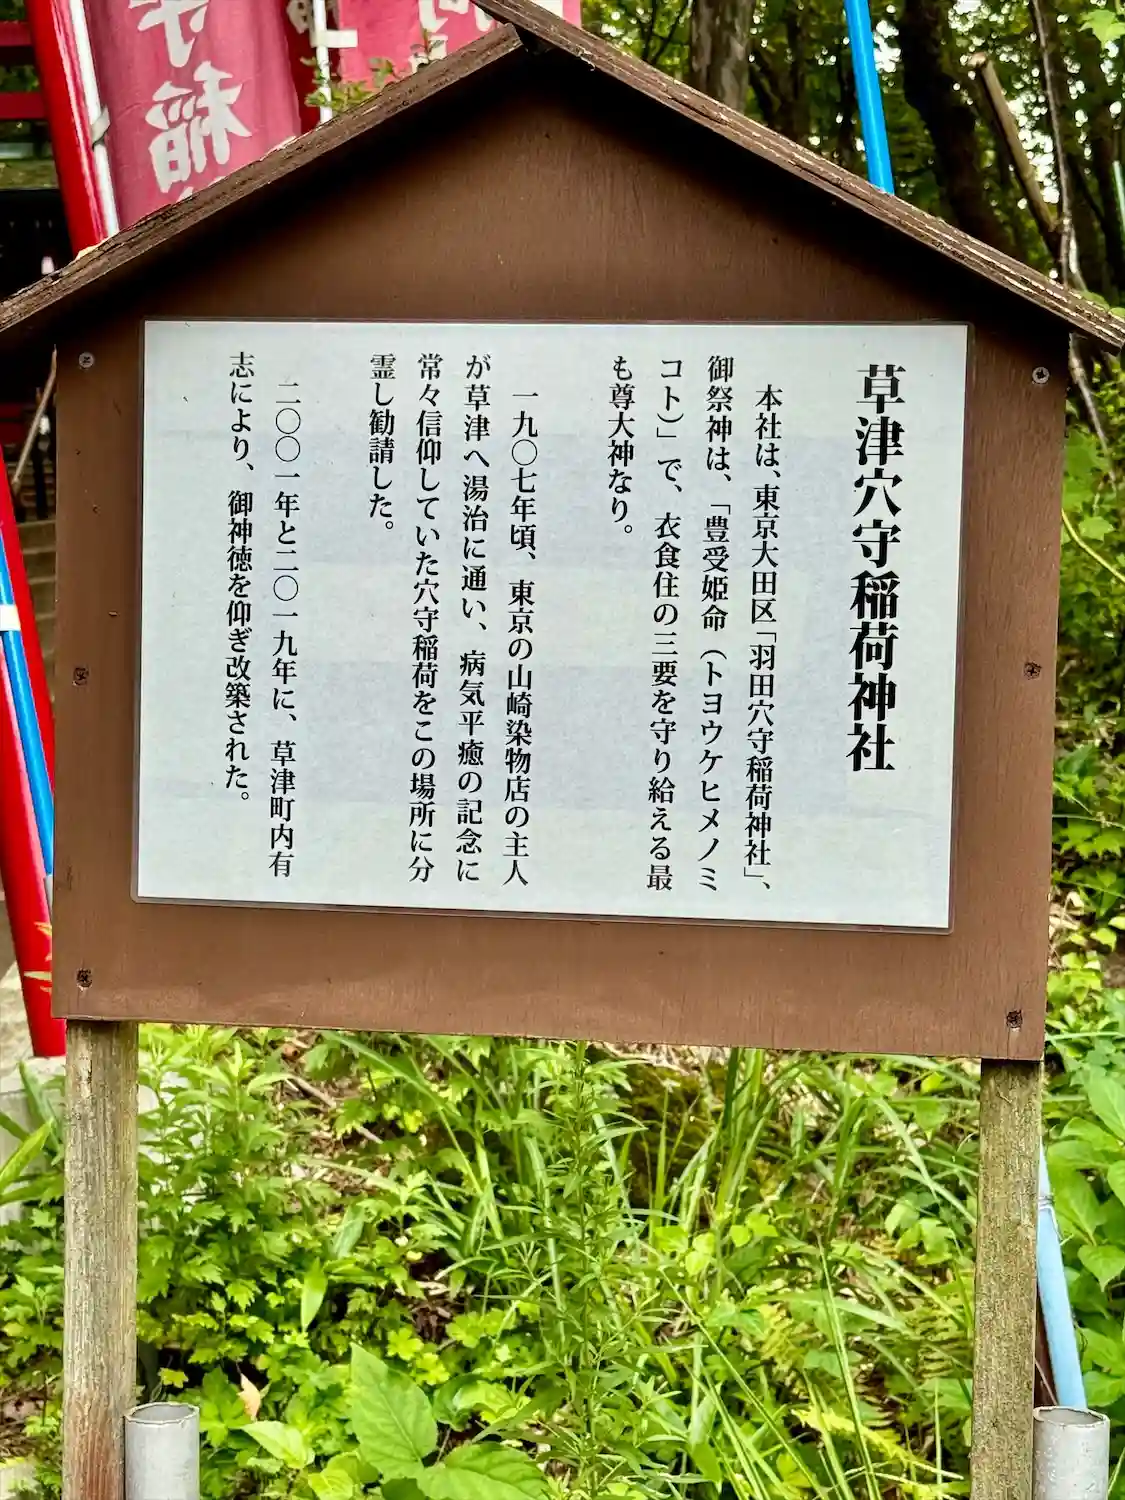 草津穴守稲荷神社
本社は、東京大田区「羽田穴守稲荷神社」、
御祭神は、「豊受姫命（トヨウケヒメノミ
コト）」で、衣食住の三要を守り給える最
も尊大神なり。
一九〇七年頃、東京の山崎染物店の主人
が草津へ湯治に通い、病気平癒の記念に
常々信仰していた穴守稲荷をこの場所に分
霊し勧請した。
二〇〇一年と二〇一九年に、草津町内有
志により、御神徳を仰ぎ改築された。
守稲